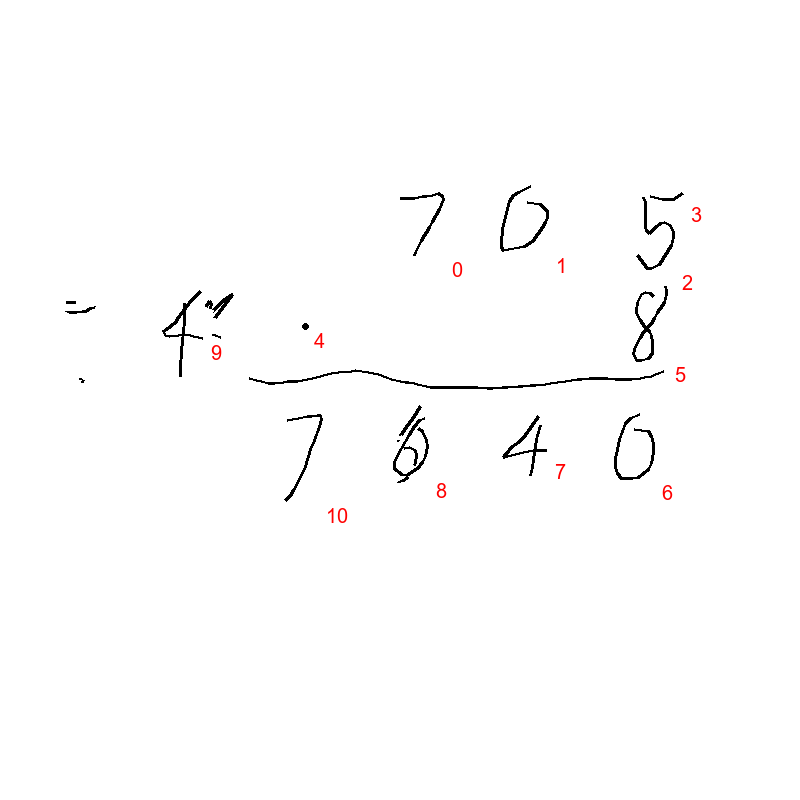 7 0 5
3
0
1
2
= 4
9
· 8
4
5
7 6 4 0
10
8
7
6